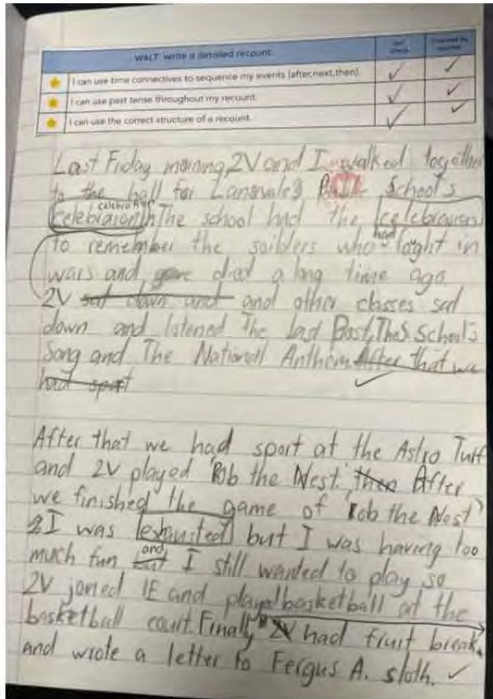 WALT: Write a detailed recount.
I can use time connectives to sequence my events (after,next,then).
I can use past tense throughout my recount.
I can use the correct structure of a recount.
Last Friday morning, 2V and I walked together
to the hall for School's
celebration
celebraion The school had the celebraion
had
to remember the soilders who foght in
wars and gave died a long time ago.
2V sat down and and other classes sad
down and listened The last Post, The School's
Song and The National Anthem. After that we
had sport
After that we had sport at the Astro Turf
and 2V played Rob the Nest. then After
we finished the game of Rob the Nest
I was exhausted but I was having too
and
much fun I still wanted to play so
2V joined 1E and played basketball at the
basketball court. Finally 2V had fruit break
and wrote a letter to Fergus A. sloth.